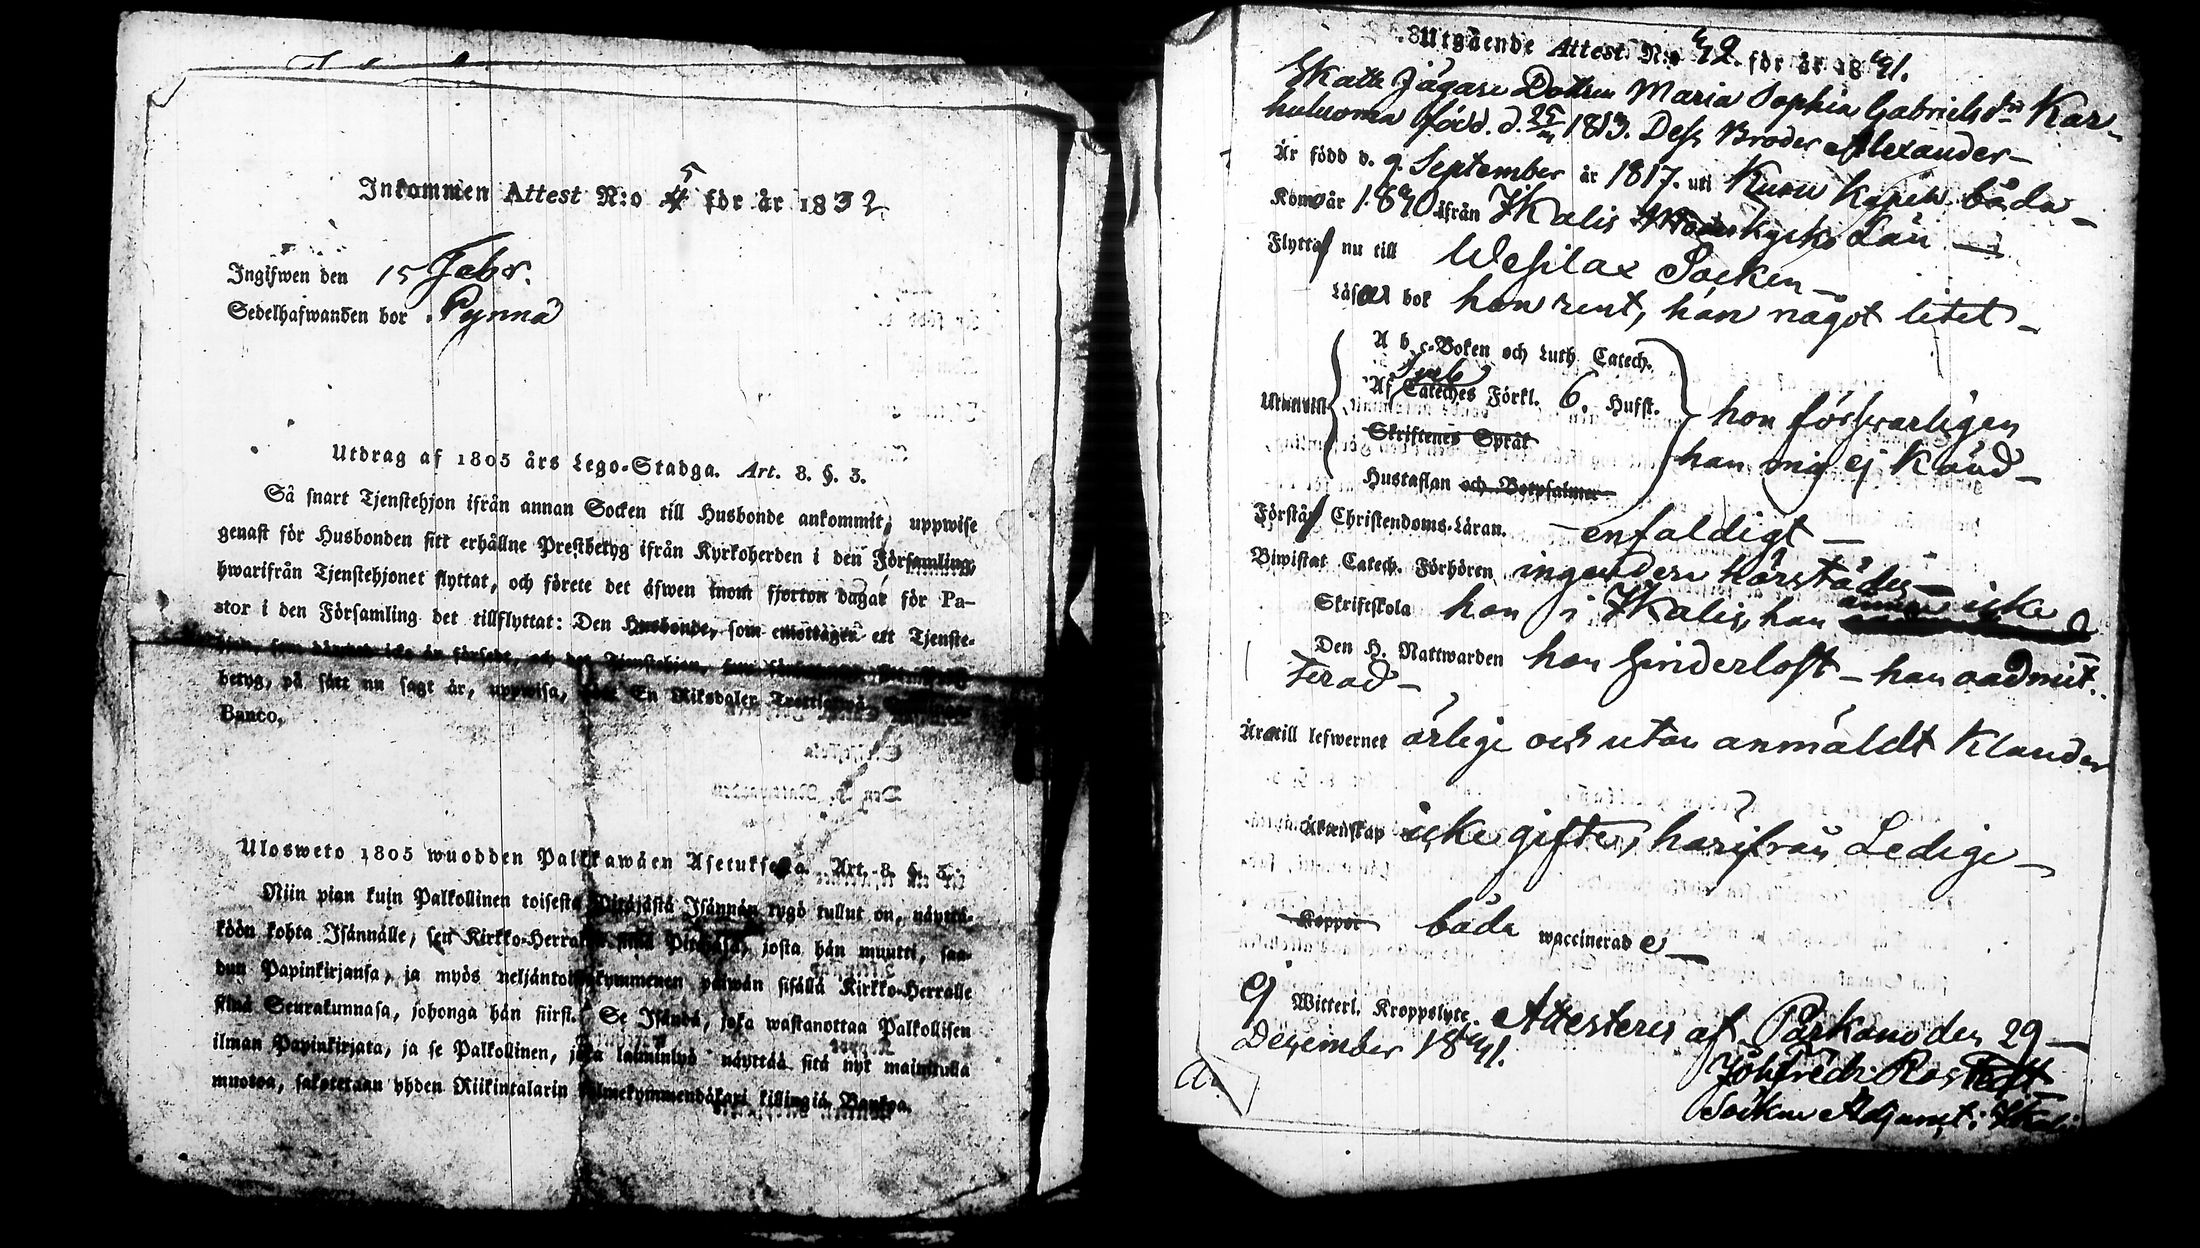 Inkommen Attest N:o 5 för år 1832
Ingifwen den 15 Febr.
Sedelhafwanden bor Pynnä
Utdrag af 1805 års Lego-Stadga. Art. 8. §. 3.
Så snart Tjenstehjon ifrån annan Socken till Husbonde ankommit, uppwise
genast för Husbonden sitt erhållne Prestbetyg ifrån Kyrkoherden i den Församling,
hwarifrån Tjenstehjonet flyttat, och förete det äfwen inom fjorton dagar för Pa-
stor i den Församling det tillflyttat: Den Husbonde, som emottager ett Tjenste-
betyg, på sätt nu sagt är, uppwisa, En Riksdaler Trettiotwå
Banco.
Ulosweto 1805 wuodden Palkkawäen Asetuksesta. Art. 8. §. 3.
Niin pian kuin Palkollinen toisesta Pitäjästä Isännän tygö tullut on, näyttä-
köön kohta Isännälle, sen Kirkko-Herralta siinä Pitäjäsä, josta hän muutti, saa-
dun Papinkirjansa, ja myös neljäntoistakymmenen päiwän sisällä Kirkko-Herralle
siinä Seurakunnasa, johonga hän siirst. Se Isändä, joka wastanottaa Palkollisen
ilman Papinkirjata, ja se Palkollinen, joka laiminlyö näyttää sitä nyt mainitulla
muotoa, sakotetaan yhden Riikintalarin kolmekymmendäkaxi killingiä Bankoa.
Utgående Attest N:o 42 för år 1841.
Skatte Jägare Dottren Maria Sophia Gabrielsdr Kar-
huluoma född. d. 25/11 1813. Dess Broder Alexander
Är född d. 9 September år 1817. uti Kuru Kapell båda
Kom år 1840 ifrån IKalis Moderkyrko Län
Flytta nu till Wesilax Socken
Läser bok hon rent, han något litet
A b c-Boken och Luth. Catech.
Af Sveb Cateches Förkl. 6. Hufst.
Utantill hon försvarligen
Skriftenes Språk
han mig ej Känd
Hustaflan och Botpsalmer
Förstår Christendoms-Läran. enfaldigt
Biwistat Catech. Förhören ingendera härstädes
Skriftskola hon i IKalis, han icke
Den H. Nattwarden hon hinderlöst - han oadmit-
terad
Äro till lefwernet ärlige och utan anmäldt Klander
Äktenskap icke gifte, härifrån Ledige
Koppor båda waccinerade
ej Witterl. Kroppslyte. Attesteres af Parkano den 29
December 1841.
Joh Fredr: Rostedt
Sockne Adjunct i IKalis